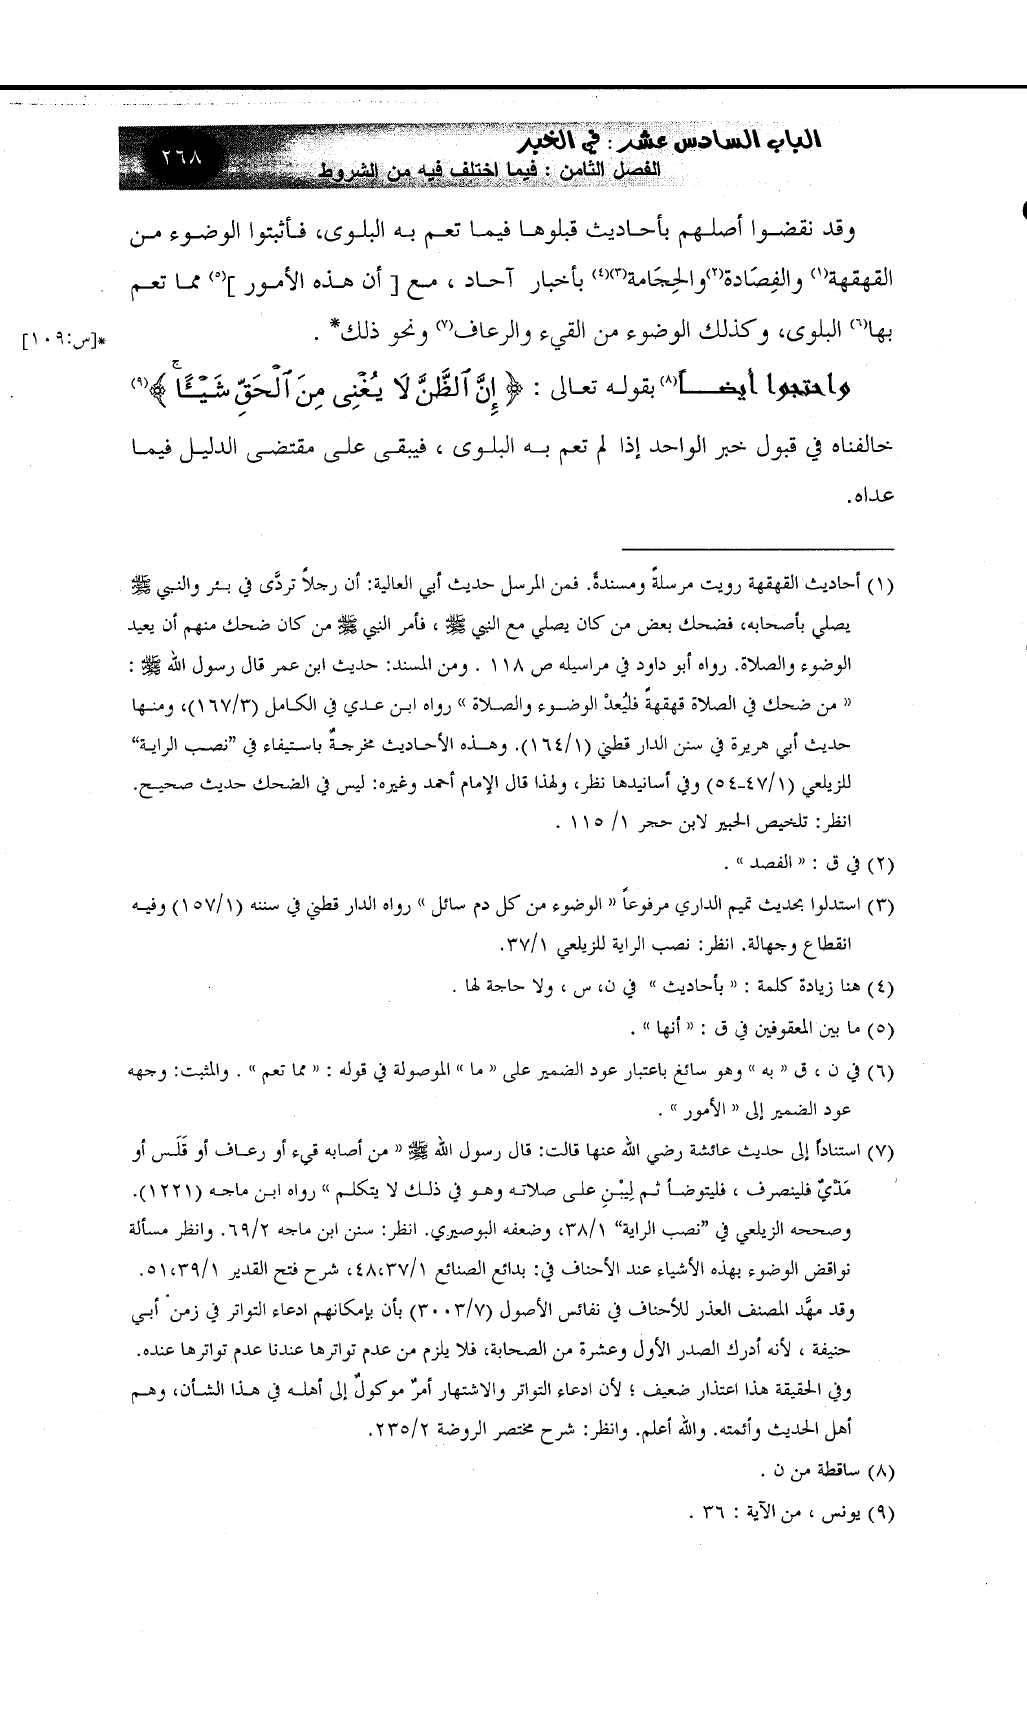 الباب السادس عشر : في الخبر
٢٦٨
الفصل الثامن : فيما اختلف فيه من الشروط
وقد نقضوا أصلهم بأحاديث قبلوها فيما تعم به البلوى، فأثبتوا الوضوء من
القهقهة(١) والفِصَادة(٢) والحِجَامة(٣)(٤) بأخبار آحاد ، مع [ أن هذه الأمور ](٥) مما تعم
بها(٦) البلوى، وكذلك الوضوء من القيء والرعاف(٧) ونحو ذلك* .
*[س:١٠٩]
واحتجوا أيضاً(٨) بقوله تعالى : ﴿ إِنَّ ٱلظَّنَّ لَا يُغْنِى مِنَ ٱلْحَقِّ شَيْـًٔا ۚ ﴾(٩)
خالفناه في قبول خبر الواحد إذا لم تعم به البلوى ، فيبقى على مقتضى الدليل فيما
عداه.
(١) أحاديث القهقهة رويت مرسلةً ومسندةً. فمن المرسل حديث أبي العالية: أن رجلاً تردَّى في بئر والنبي ﷺ
يصلي بأصحابه، فضحك بعض من كان يصلي مع النبي ﷺ ، فأمر النبي ﷺ من كان ضحك منهم أن يعيد
الوضوء والصلاة. رواه أبو داود في مراسيله ص ١١٨ . ومن المسند: حديث ابن عمر قال رسول الله ﷺ :
« من ضحك في الصلاة قهقهةً فليُعدْ الوضوء والصلاة » رواه ابن عدي في الكامل (١٦٧/٣)، ومنها
حديث أبي هريرة في سنن الدار قطني (١٦٤/١). وهذه الأحاديث مخرجةٌ باستيفاء في ”نصب الراية“
للزيلعي (٤٧/١-٥٤) وفي أسانيدها نظر، ولهذا قال الإمام أحمد وغيره: ليس في الضحك حديث صحيح.
انظر: تلخيص الحبير لابن حجر ١/ ١١٥ .
(٢) في ق : « الفصد » .
(٣) استدلوا بحديث تميم الداري مرفوعاً « الوضوء من كل دم سائل » رواه الدار قطني في سننه (١٥٧/١) وفيه
انقطاع وجهالة. انظر: نصب الراية للزيلعي ٣٧/١.
(٤) هنا زيادة كلمة : « بأحاديث » في ن، س ، ولا حاجة لها .
(٥) ما بين المعقوفين في ق : « أنها » .
(٦) في ن ، ق « به » وهو سائغ باعتبار عود الضمير على « ما » الموصولة في قوله : « مما تعم » . والمثبت: وجهه
عود الضمير إلى « الأمور » .
(٧) استناداً إلى حديث عائشة رضي الله عنها قالت: قال رسول الله ﷺ « من أصابه قيء أو رعاف أو قَلَس أو
مَذْيٌ فلينصرف ، فليتوضأ ثم لِيبْنِ على صلاته وهو في ذلك لا يتكلم » رواه ابن ماجه (١٢٢١).
وصححه الزيلعي في ”نصب الراية“ ٣٨/١، وضعفه البوصيري. انظر: سنن ابن ماجه ٦٩/٢. وانظر مسألة
نواقض الوضوء بهذه الأشياء عند الأحناف في: بدائع الصنائع ٤٨،٣٧/١، شرح فتح القدير ٥١،٣٩/١.
وقد مهَّد المصنف العذر للأحناف في نفائس الأصول (٣٠٠٣/٧) بأن بإمكانهم ادعاء التواتر في زمن أبي
حنيفة ، لأنه أدرك الصدر الأول وعشرة من الصحابة، فلا يلزم من عدم تواترها عندنا عدم تواترها عنده.
وفي الحقيقة هذا اعتذار ضعيف ؛ لأن ادعاء التواتر والاشتهار أمرٌ موكولٌ إلى أهله في هذا الشأن، وهم
أهل الحديث وأئمته. والله أعلم. وانظر: شرح مختصر الروضة ٢٣٥/٢.
(٨) ساقطة من ن .
(٩) يونس ، من الآية : ٣٦ .